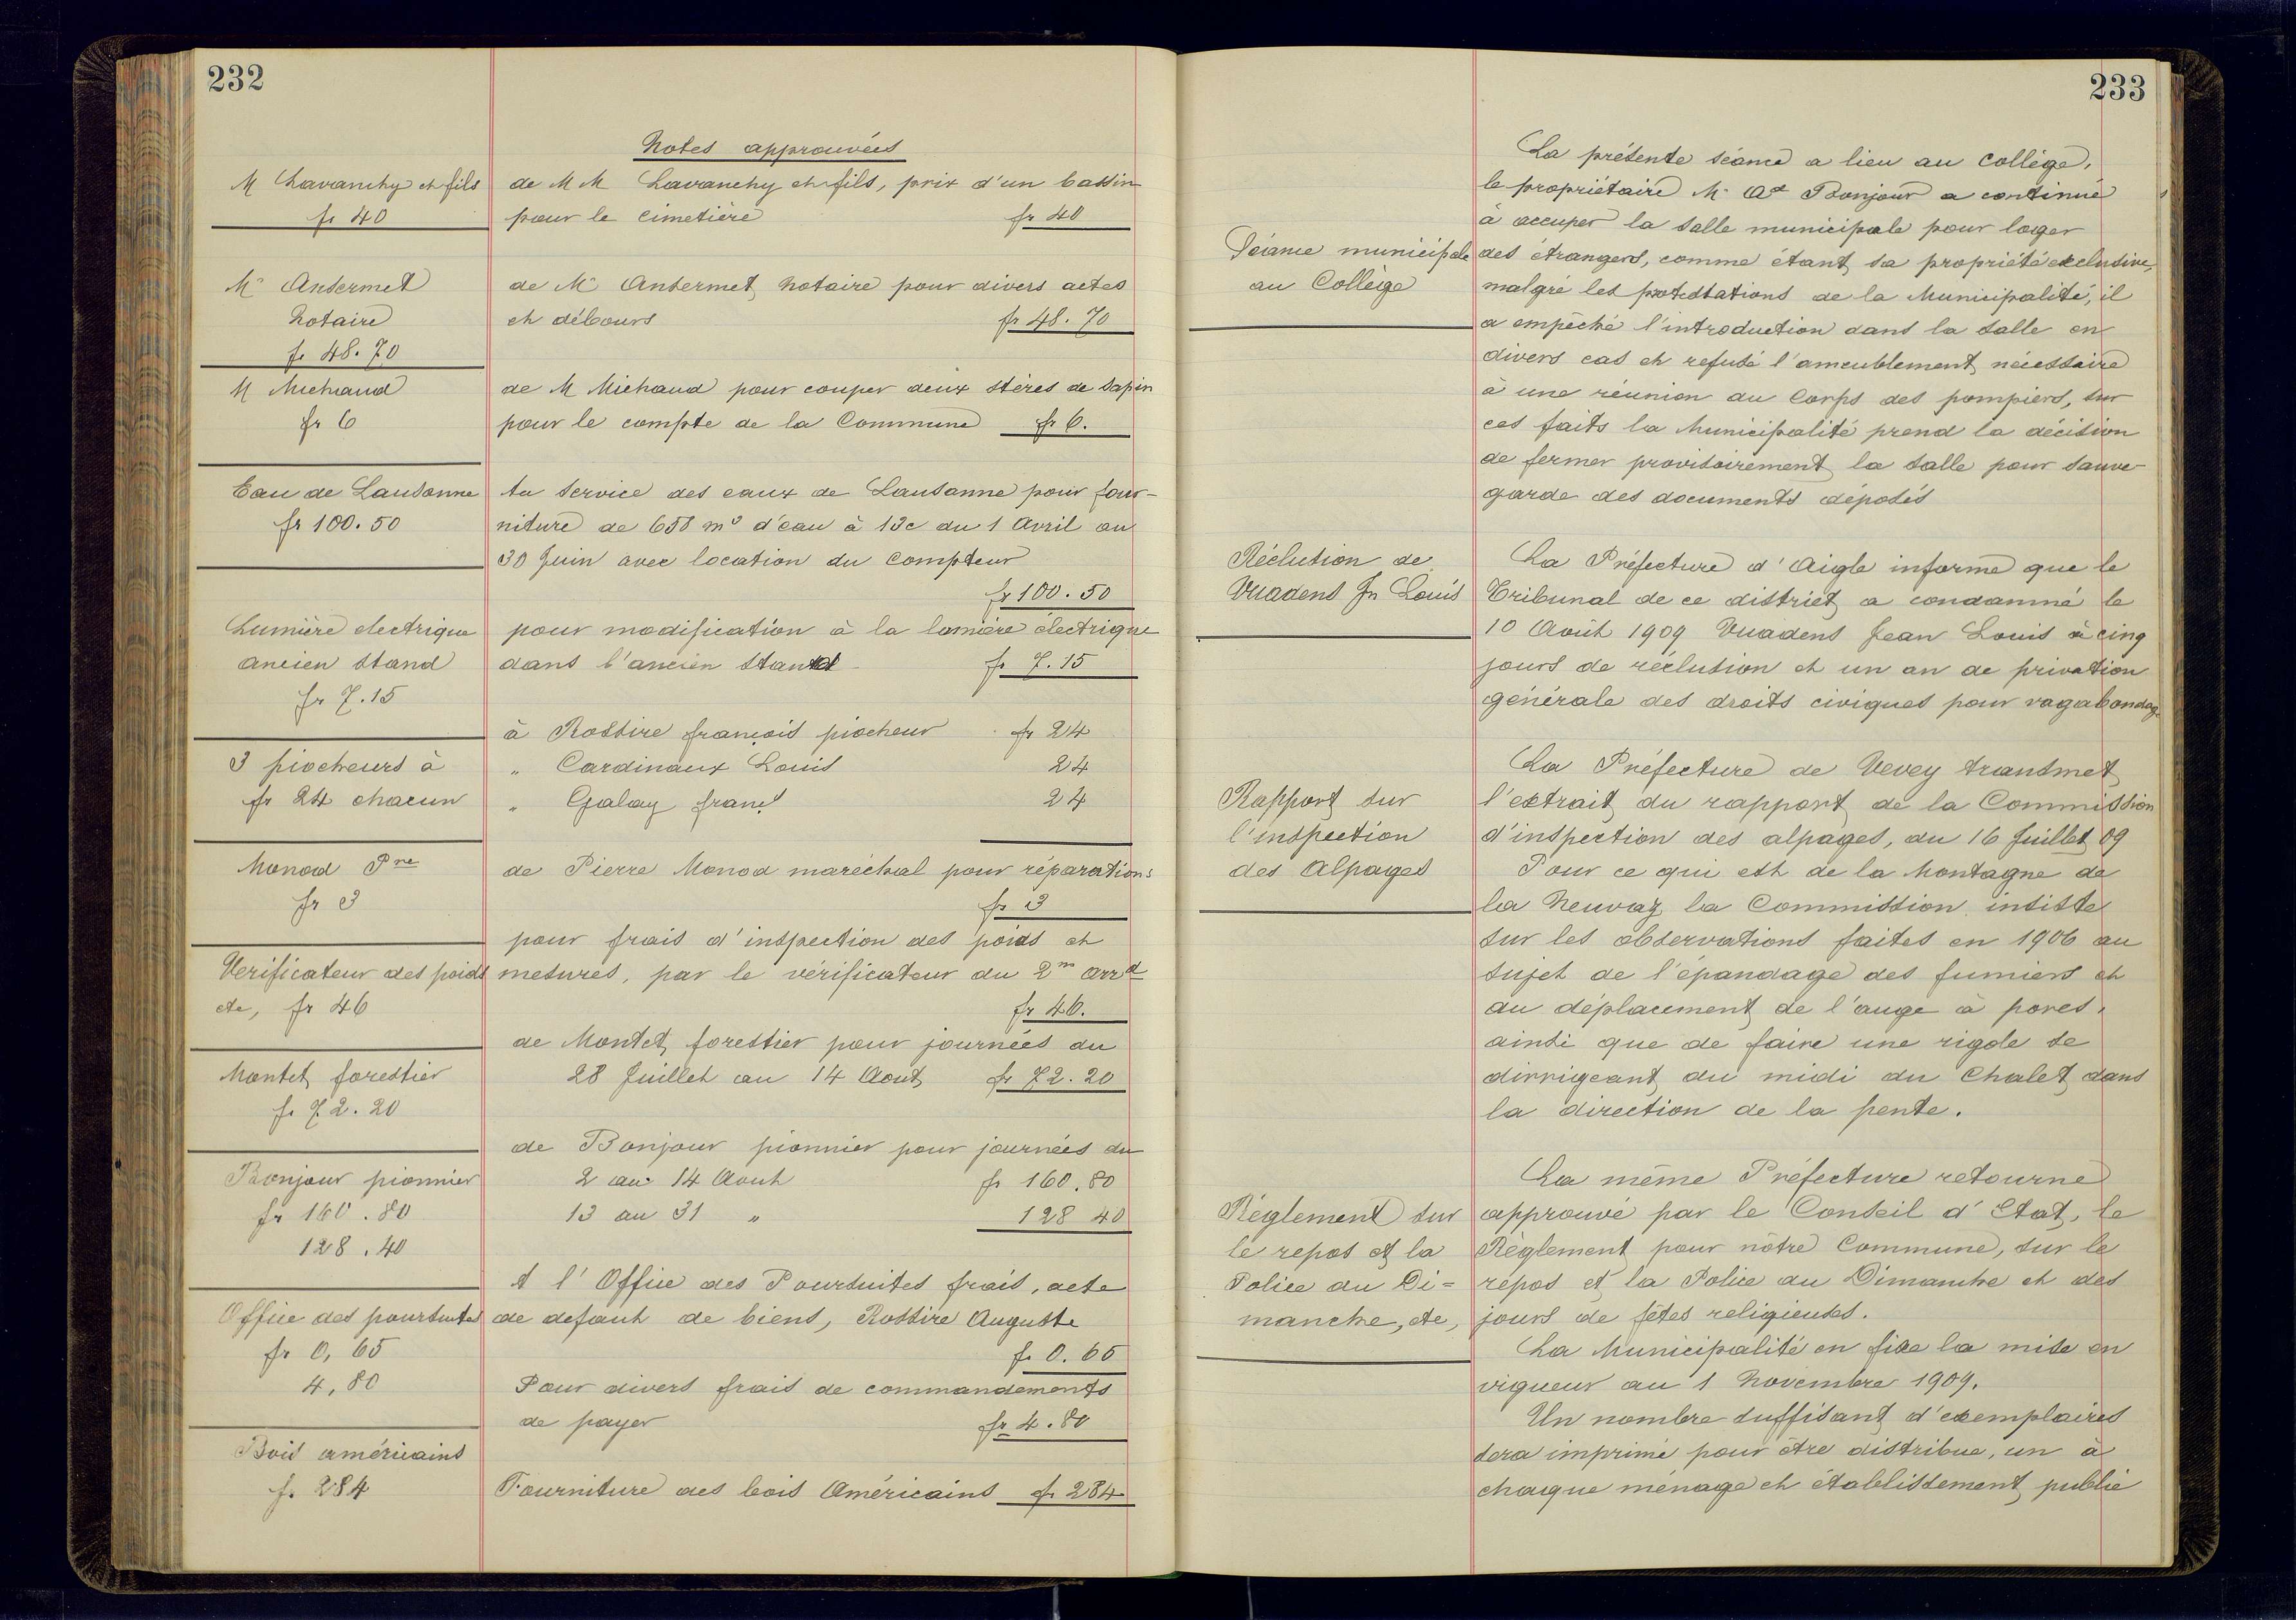 232
Notes approuvées
M Lavanchy et fils
fr 40
de M M Lavanchy et fils, prix d'un bassin
pour le cimetière fr 40
Mr Ansermet
Notaire
fr 48.70
de Mr Ansermet notaire pour divers actes
et débours fr 48.70
M Michaud
fr 6
de M Michaud pour couper deux stères de sapin
pour le compte de la Commune fr 6.
Eau de Lausanne
fr 100.50
Au Service des eaux de Lausanne pour four-
niture de 658 m3 d'eau à 13c du 1 Avril au
30 Juin avec location du Compteur
fr 100.50
Lumière electrique
ancien stand
fr 7.15
pour modification à la lumière électrique
dans l'ancien Stand fr 7.15
3 piocheurs à
fr 24 chacun
à Rossire françois piocheur fr 24
" Cardinaux Louis 24
" Galay franç 24
Monod Pre
fr 3
de Pierre Monod maréchal pour réparations
fr 3
Verificateur des poids
etc, fr 46
pour frais d'inspection des poids et
mesures, par le vérificateur du 2m arrd
fr 46.
Montet forestier
fr 72.20
de Montet forestier pour journées du
28 Juillet au 14 Aout fr 72.20
Bonjour pionnier
fr 160.80
128.40
de Bonjour pionnier pour journées du
2 au 14 Aout fr 160.80
13 au 31 " 128 40
Office des poursuites
fr 0,65
4,80
A l'Office des Poursuites frais, acte
de defaut de biens, Rossire Auguste
fr 0.65
Pour divers frais de commandements
de payer fr 4.80
Bois américains
fr 284
Fourniture des bois Américains fr 284
233
Séance municipale
au Collège
La présente séance a lieu au collège,
le propriétaire Mr Ad Bonjour a continué
à occuper la salle municipale pour loger
des étrangers, comme étant sa propriété exclusive,
malgré les protestations de la Municipalité, il
a empêché l'introduction dans la salle en
divers cas et refusé l'ameublement nécessaire
à une réunion du Corps des pompiers, sur
ces faits la Municipalité prend la décision
de fermer provisoirement la salle pour sauve-
garde des documents déposés
Réclution de
Vuadens Jn Louis
La Préfecture d'Aigle informe que le
Tribunal de ce district a condamné le
10 Août 1909 Vuadens Jean Louis à cinq
jours de réclution et un an de privation
générale des droits civiques pour vagabondage
Rapport sur
l'inspection
des Alpages
La Préfecture de Vevey transmet
l'extrait du rapport de la Commission
d'inspection des alpages, du 16 Juillet 09
Pour ce qui est de la Montagne de
la Neuvaz la Commission insiste
sur les observations faites en 1906 au
sujet de l'épandage des fumiers et
du déplacement de l'auge à porcs,
ainsi que de faire une rigole se
dirrigeant du midi du Chalet dans
la direction de la pente.
Réglement sur
le repos et la
Police du Di=
manche, etc,
La même Préfecture retourne
approuvé par le Conseil d'Etat, le
Règlement pour nôtre Commune, sur le
répos et la Police du Dimanche et des
jours de fêtes religieuses.
La Municipalité en fixe la mise en
vigueur au 1 Novembre 1909.
Un nombre suffisant d'exemplaires
sera imprimé pour être distribué, un à
chaque ménage et établissement public